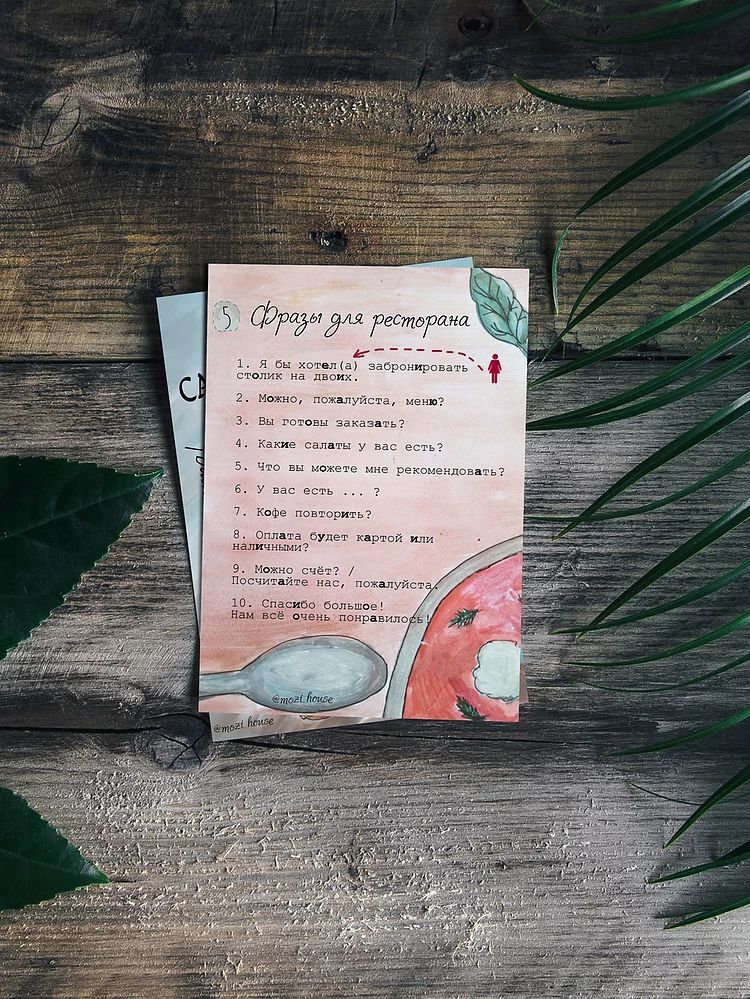 5 Фразы для ресторана
1. Я бы хотел(а) забронировать
столик на двоих.
2. Можно, пожалуйста, меню?
3. Вы готовы заказать?
4. Какие салаты у вас есть?
5. Что вы можете мне рекомендовать?
6. У вас есть ... ?
7. Кофе повторить?
8. Оплата будет картой или
наличными?
9. Можно счёт? /
Посчитайте нас, пожалуйста.
10. Спасибо большое!
Нам всё очень понравилось!
@mozi_house
@mozi_house